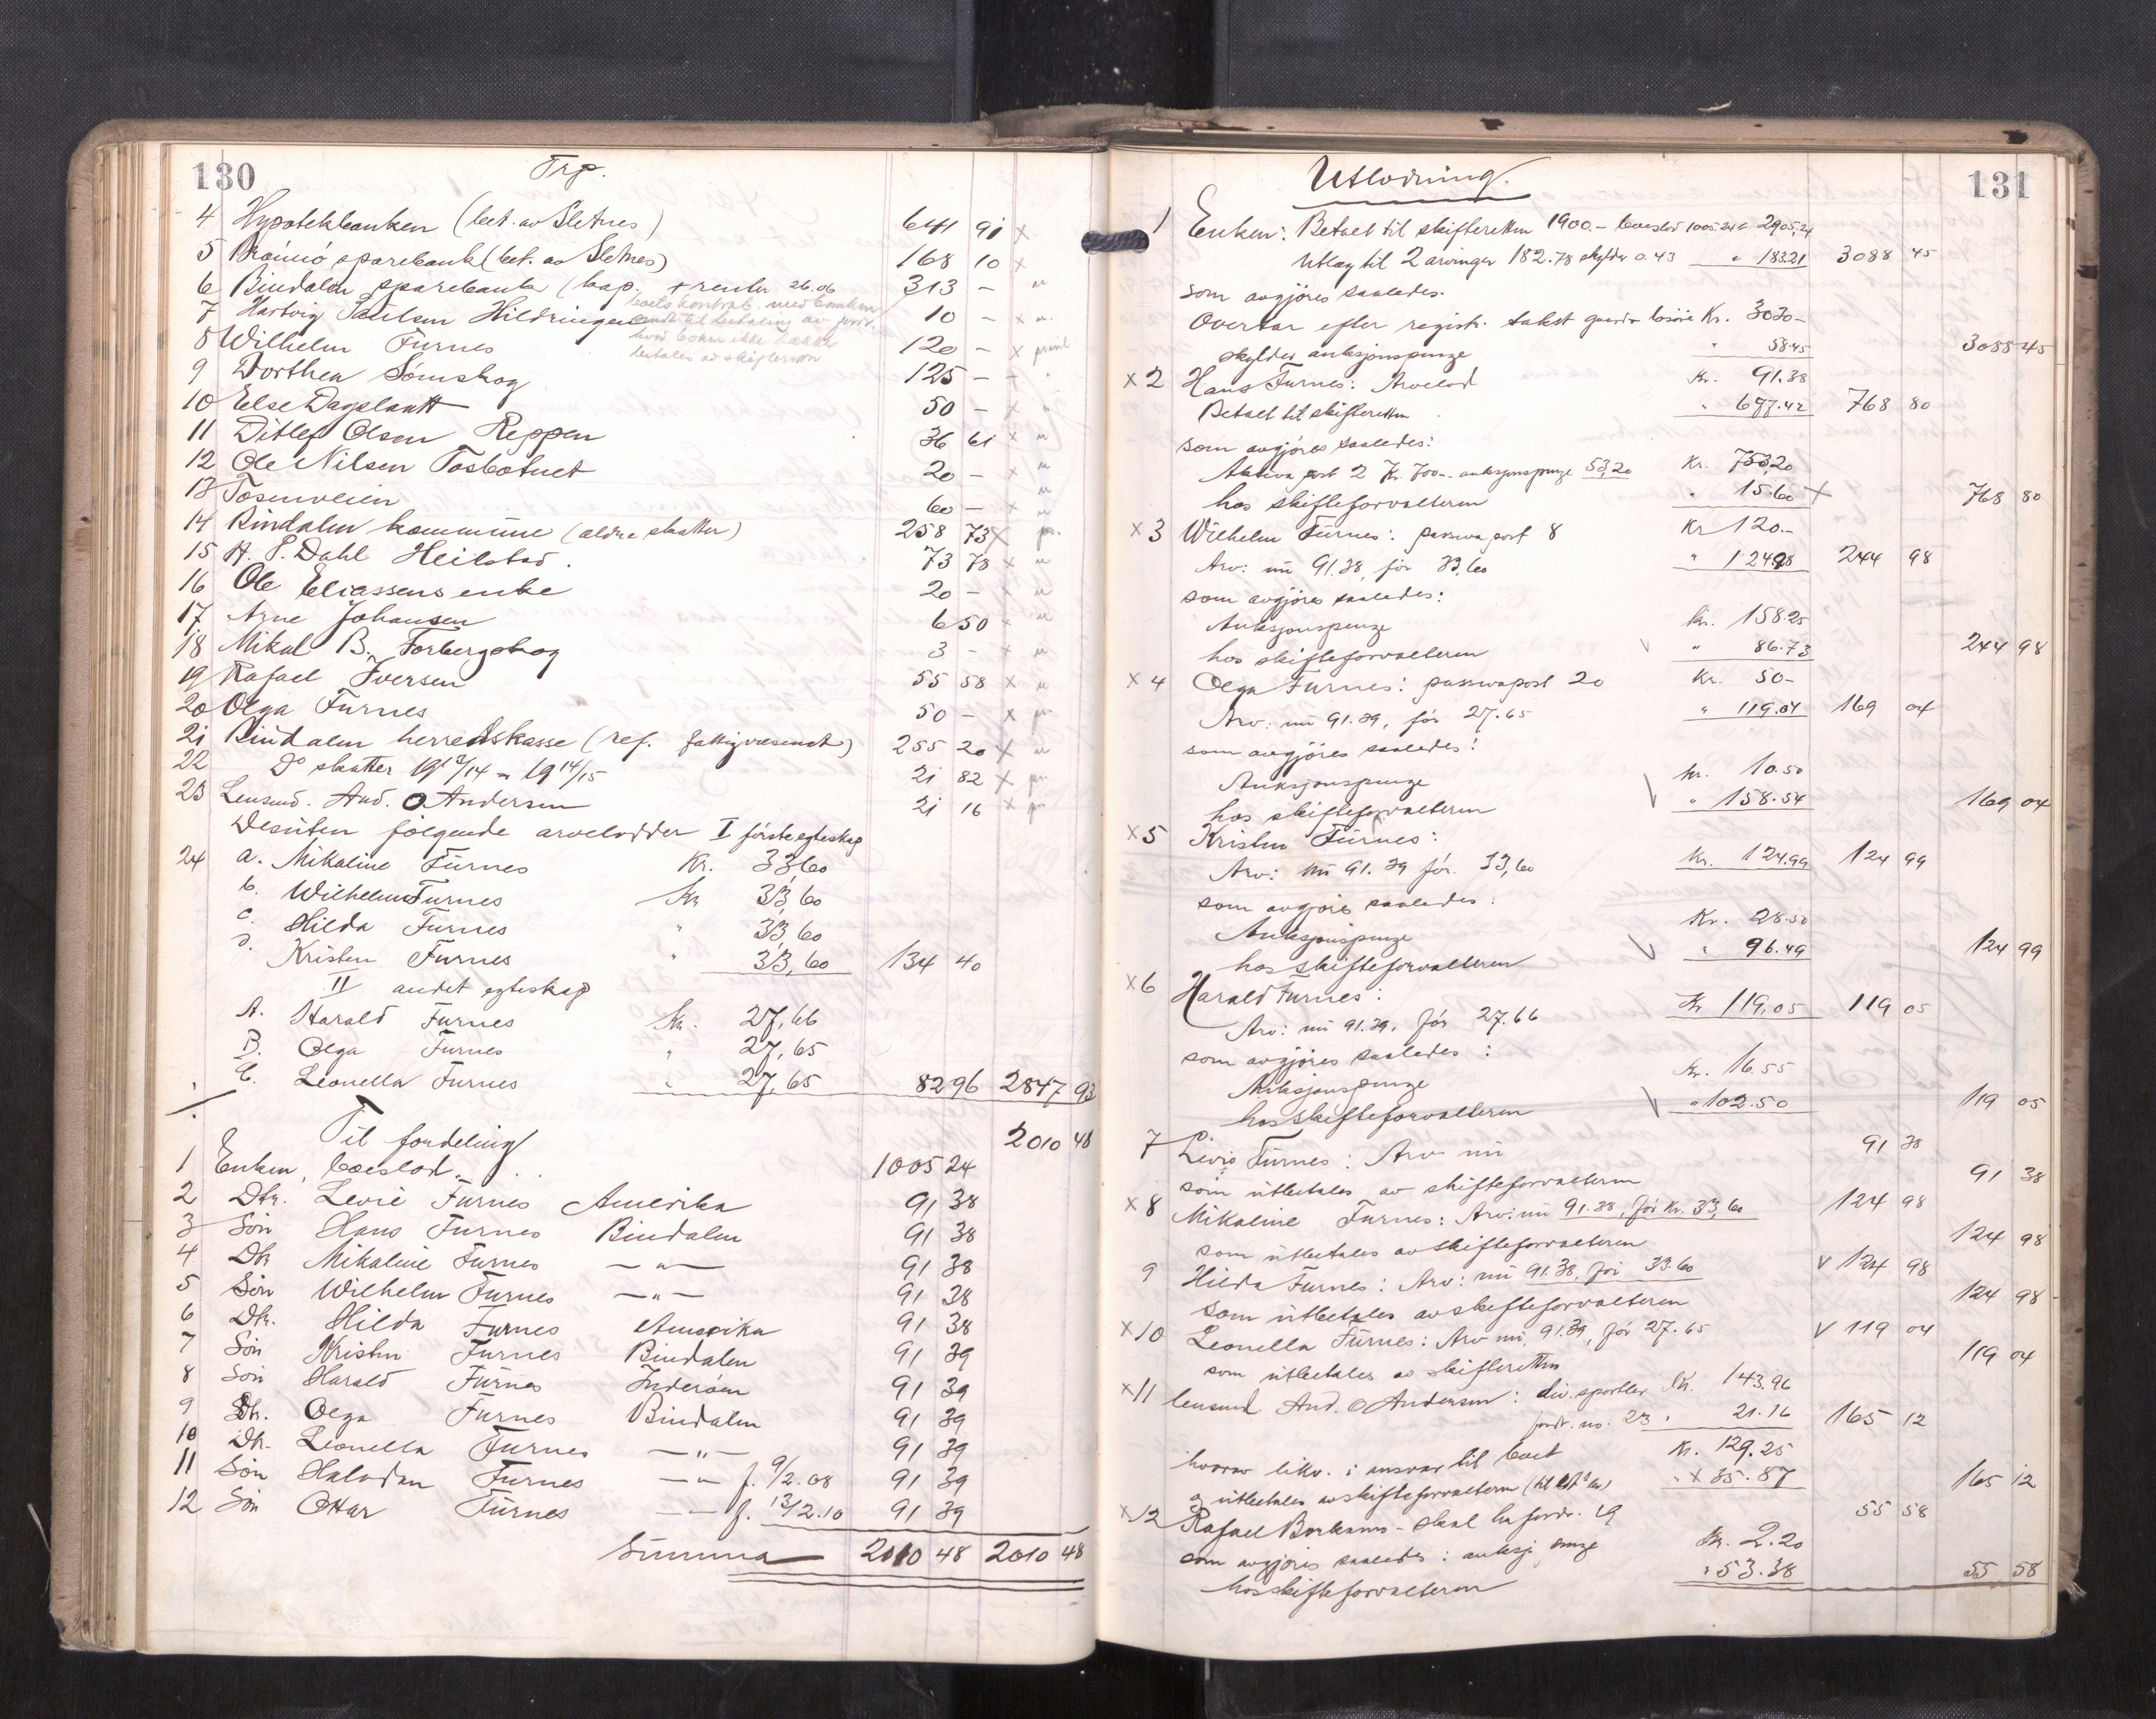 130
Trp.
4 Hypotekbanken (bet. av Sletnes) 641 91 x
5 Brönnö sparebank (bet. av Sletnes) 168 10 x
6 Bindalen sparebank (kap. + renter 26.06 313 - "
7 Hartvig Paulsen Hildringen 10 - x "
8 Wilhelm Furnes 120 - x
betales av skifteretten
9 Dorthea Sömskog 125 -
10 Else Dagslaatt 50 - x "
11 Ditlef Olsen Reppen 36 61 x "
12 Ole Nilsen Tosbotnet 20 - x "
13 Tosenveien 60 - x "
14 Bindalen kommune (ældre skatter) 258 73 x pr.
15 A. P. Dahl Heilstad. 73 78 x "
16 Ole Eliassens enke 20 - x "
17. Arne Johansen 6 50 x "
18 Mikal B. Forbergskog 3 - x "
19 Rafael Iversen 55 58 x "
20 Olga Furnes 50 - x pr.
21 Bindalen herredskasse (ref. fattigvæsenet) 255 20 x "
22 Do skatter 1913/14 - 1914/15 21 82 x pr.
23 Lensmd. And. O Andersen 21 16 x pr
Desuten følgende arvelodder I første egteskap
24 a. Mikaline Furnes Kr. 33,60
b. Wilhelm Furnes Kr 33,60
c. Hilda Furnes " 33,60
d. Kristen Furnes " 33,60 134 40
II andet egteskap
A. Harald Furnes Kr. 27,66
B. Olga Furnes " 27,65
C. Leonella Furnes " 27,65 82 96 2847 93
Til fordeling 2010 48
1 Enken, boeslod. . . 1005 24
2 Dtr. Levie Furnes Amerika 91 38
3 Sön Hans Furnes Bindalen 91 38
4 Dtr Mikaline Furnes — " — 91 38
5 Sön Wilhelm Furnes — " — 91 38
6 Dtr. Hilda Furnes Amerika 91 38
7 Sön Kristen Furnes Bindalen 91 39
8 Sön Harald Furnes Inderöen 91 39
9 Dtr. Olga Furnes Bindalen 91 39
10 Dtr. Leonella Furnes — " — 91 39
11 Sön Halvdan Furnes — " f. 9/2.08 91 39
12 Sön Ottar Furnes — — f. 13/2.10 91 39
Summa 2010 48 2010 48
131
Utlodning.
1 Enken: Betalt til skifteretten 1900.- boeslod 1005.24 = 2905,24
Utlæg til 2 arvinger 182.78 skylder 0.43 " 183.21 3088 45
som avgjöres saaledes.
Overtar efter registr. takst gaard + lösöre Kr. 3030-
skylder auksjonspenge " 58.45 3088 45
x 2 Hans Furnes: Arvelod Kr. 91.38
Betalt til skifteretten " 677.42 768 80
som avgjöres saaledes:
Aktiva post 2 Kr. 700.- auksjonspenge 53,20 Kr. 753,20
hos skifteforvalteren " 15.60 x 768 80
x 3 Wilhelm Furnes: passiva post 8 Kr 120.-
Arv: nu 91.38, för 33,60 " 124 98 244 98
som avgjöres saaledes:
Auksjonspenge Kr. 158.25
hos skifteforvalteren " 86.73 244 98
x 4 Olga Furnes: passivapost 20 Kr. 50-
Arv: nu 91.39, för 27.65 " 119.04 169 04
som avgjöres saaledes:
Auksjonspenge Kr. 10.50
hos skifteforvalteren " 158.54 169 04
x 5 Kristen Furnes:
Arv: nu 91.39 för. 33,60 Kr. 124.99 124 99
som avgjöres saaledes:
Auksjonspenge Kr. 28.50
hos skifteforvalteren " 96.49 124 99
x 6 Harald Furnes:
Arv: nu 91.39. för 27.66 Kr 119,05 119 05
som avgjöres saaledes:
Auksjonspenge Kr. 16.55
hos skifteforvalteren " 102.50 119 05
7 Levie Furnes: Arv nu 91 38
som utbetales av skifteforvalteren 91 38
x 8 Mikaline Furnes: Arv: nu 91.38, för Kr. 33,60 124 98
som utbetales av skifteforvalteren 124 98
9 Hilda Furnes: Arv: nu 91.38, för 33.60 v 124 98
som utbetales av skifteforvalteren 124 98
x 10 Leonella Furnes: Arv nu, 91.39, för 27.65 v 119 04
som utbetales av skifteretten 119 04
x 11 lensmd. And. O Andersen: div. sportler Kr. 143.96
fordr. no. 23 " 21.16 165 12
hvorav likv. i ansvar til boet Kr. 129.25
og utbetales av skifteforvalteren " x 35.87 165 12
x 12 Rafael - fordr. 19 55 58
som avgjöres saaledes: auksj. penge Kr. 2.20
hos skifteforvalteren " 53.38 55 58